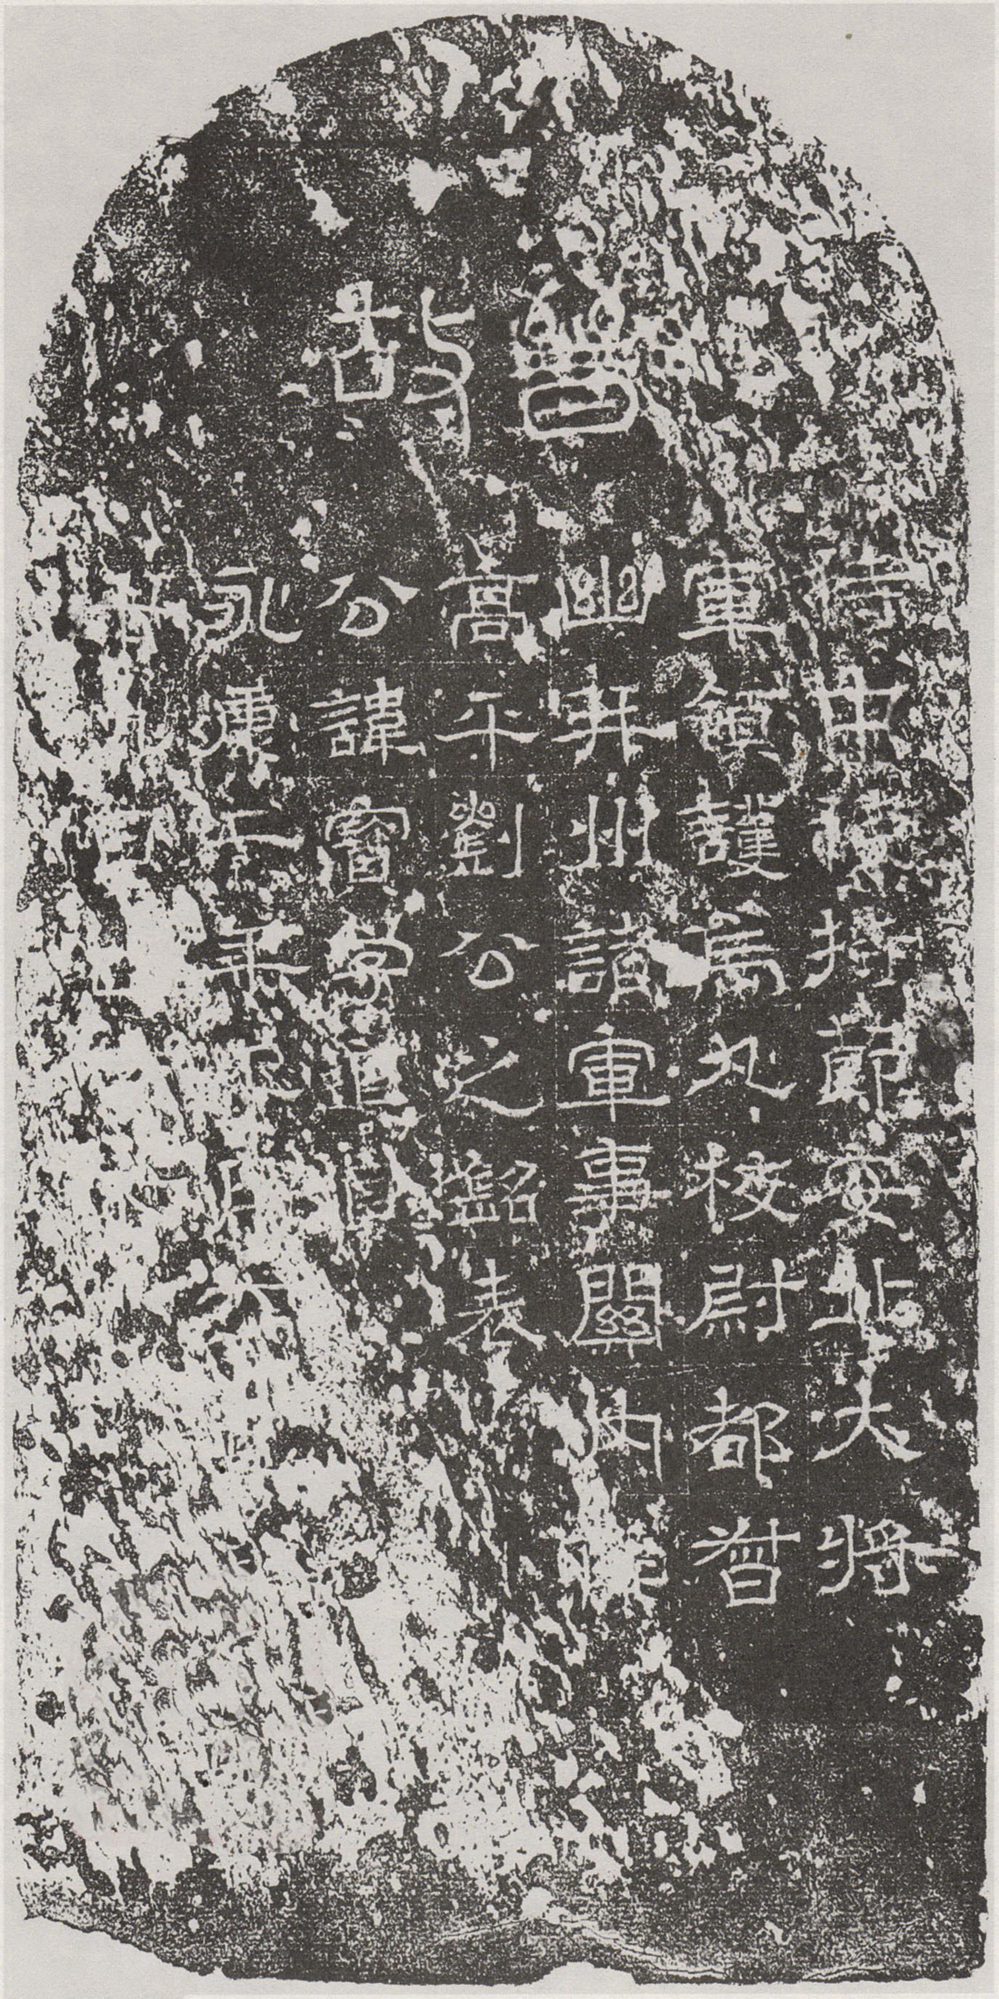 晉故
侍中使持節安北大將
軍領護烏丸校尉都督
幽并州諸軍事關內侯
高平劉公之銘表
公諱寶字道真
永康二年正月